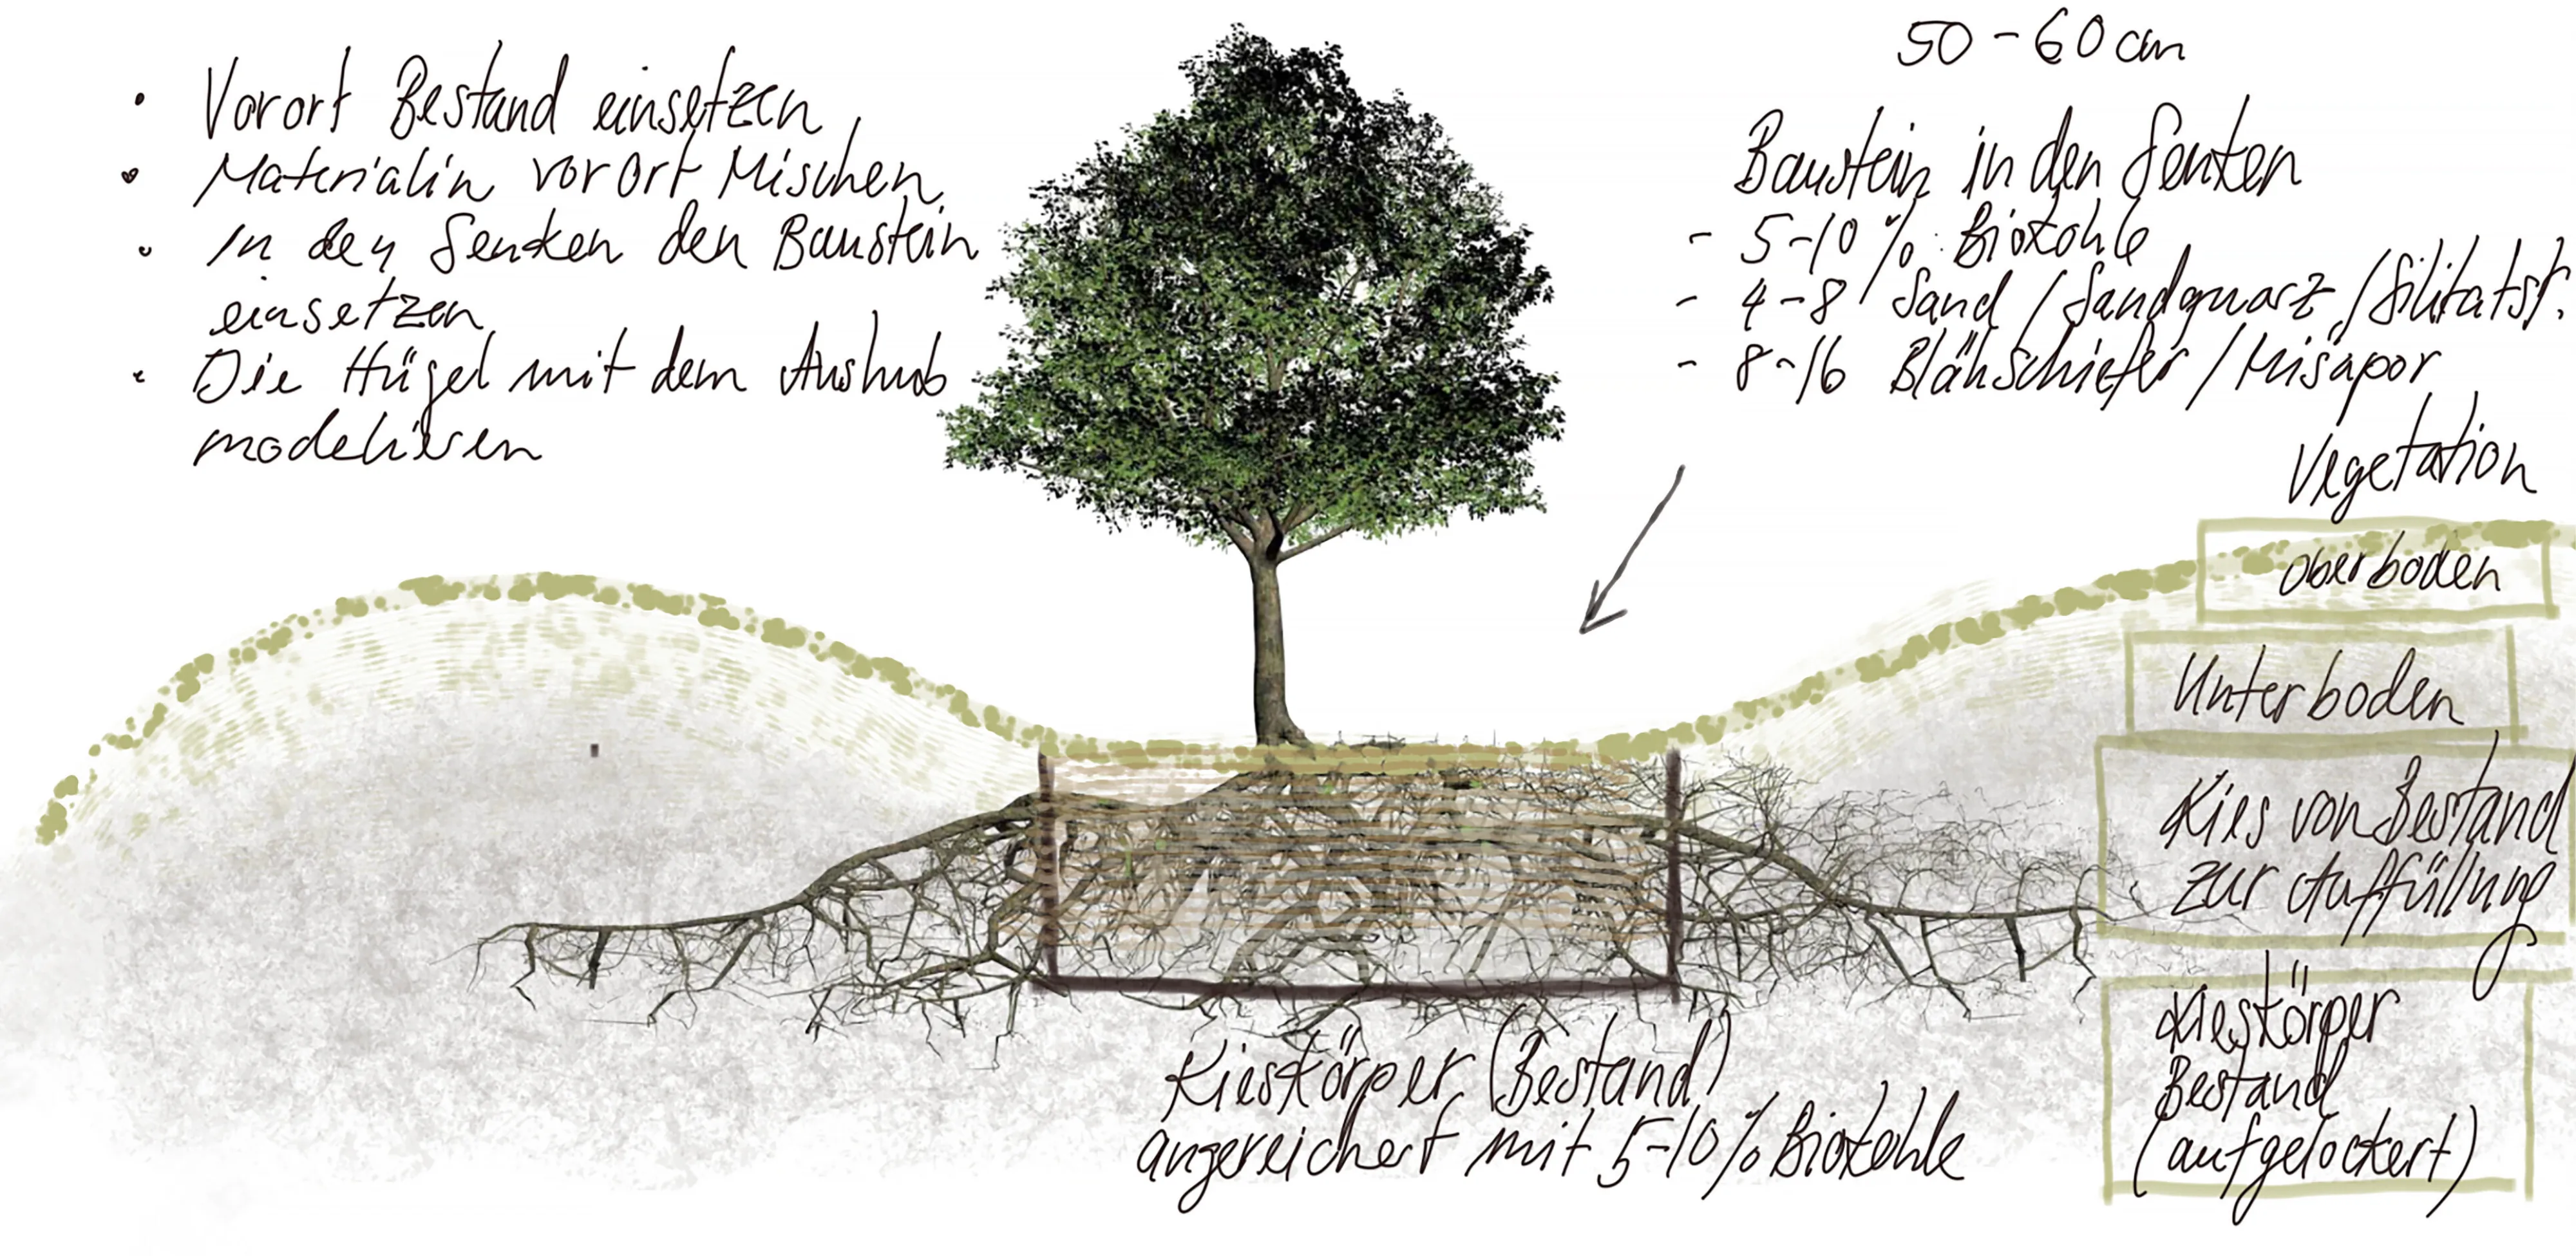 • Vorort Bestand einsetzen
• Materialin vorort Mischen
• In den Senken den Baustein
einsetzen
• Die Hügel mit dem Aushub
modelieren
50-60 cm
Baustein in den Senken
- 5-10 % Biokohle
- 4-8 Sand / Sandquarz /
- 8-16 Blähschiefer / Misapor
Vegetation
Oberboden
Unterboden
Kies von Bestand
zur Auffüllung
Kieskörper
Bestand
(aufgelockert)
Kieskörper (Bestand)
angereichert mit 5-10% Biokohle